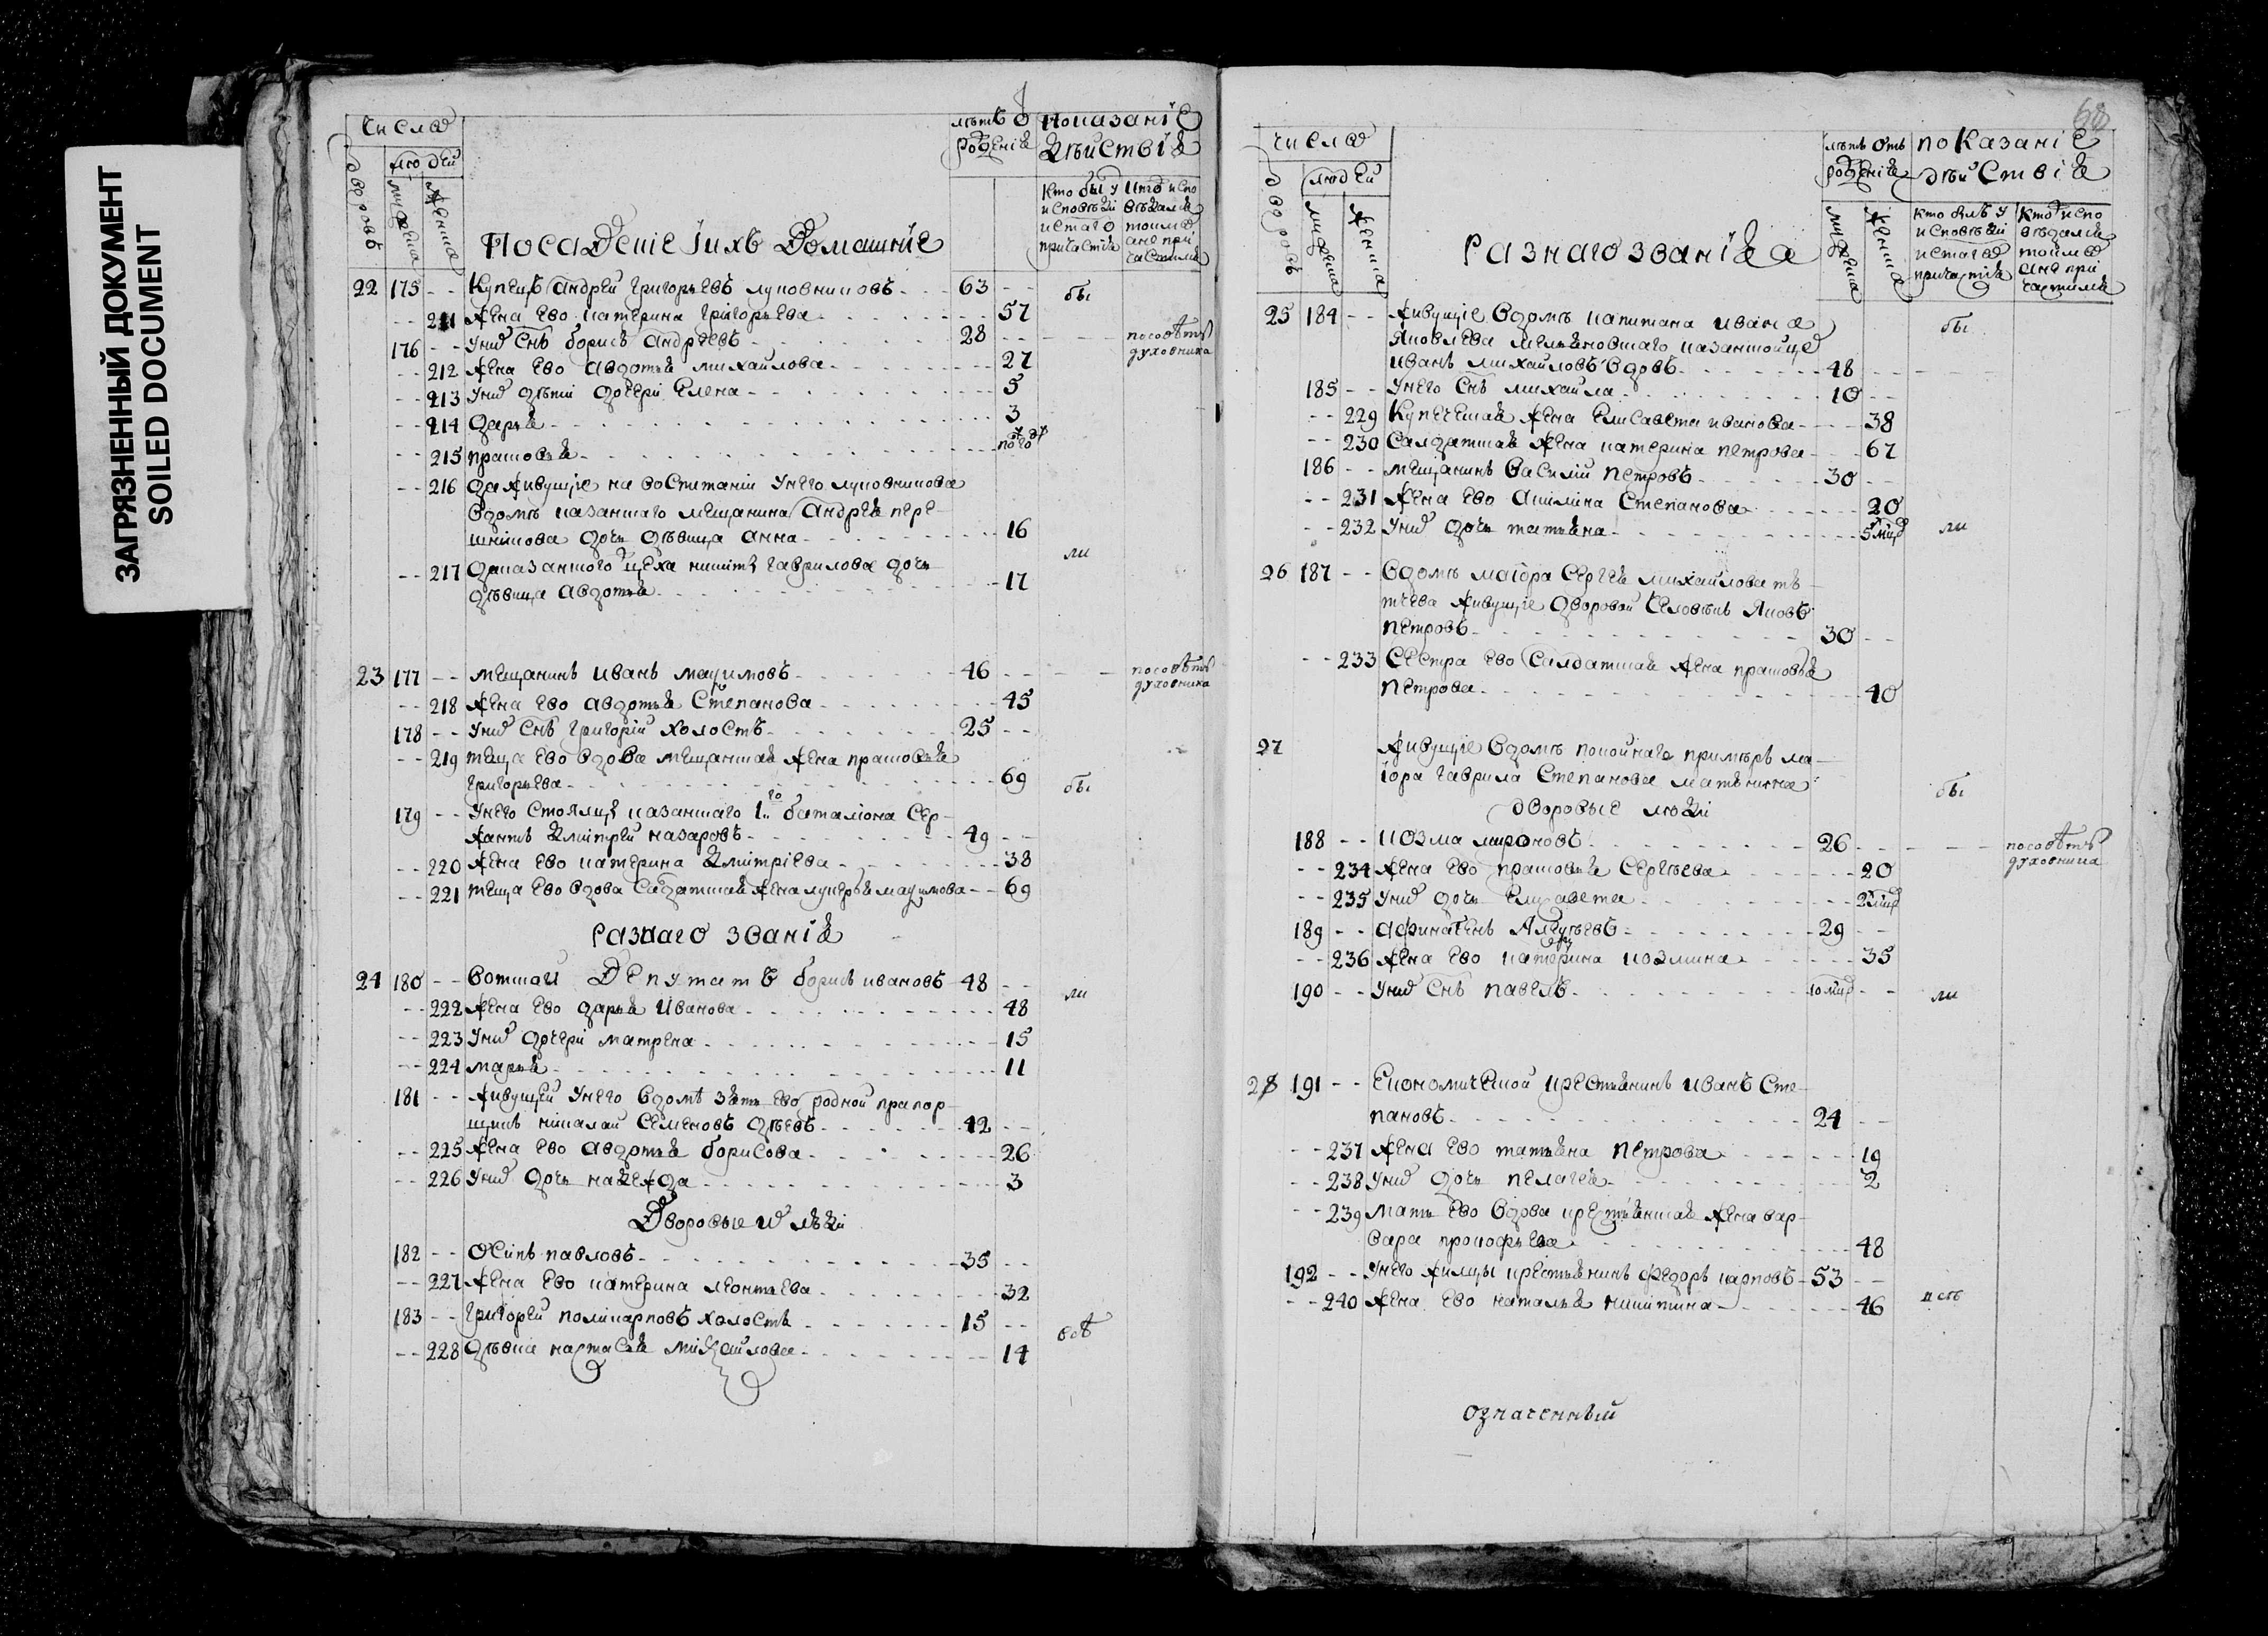 ЗАГРЯЗНЕННЫЙ ДОКУМЕНТ
SOILED DOCUMENT
число
людей
дворовъ
мужеска
женска
Посадскіе їихъ Домашніе
лѣтъ
рожденїя
показанїе
дѣйствїя
кто былъ у исповѣди и стаго причастїя
кто исповѣдался токмо а не причастился
22 175 -- Купецъ Андрей Григорьевъ луковниковъ 63 -- бы
-- 211 Жена Ево катерина Григорьева 57
176 -- Унихъ Снъ борисъ Андреевъ 28 -- посовѣту духовника
-- 212 Жена Ево Авдотья михайлова 27
-- 213 Унихъ дѣти дочери Елена 5
-- 214 Дарья 3
-- 215 прасковья
-- 216 Да живущїе на воспитанїи Унего луковникова
Вдомѣ казанскаго мещанина Андрея
дочь дѣвица Анна 16
ли
-- 217 Дказанского цеха никиты гаврилова дочь
дѣвица Авдотья 17
23 177 -- мещанинъ иванъ мазимовъ 46 -- посовѣту духовника
-- 218 Жена Ево Авдотья Степанова 45
178 -- Унихъ Снъ Григорїй холостъ 25 --
-- 219 теща Ево вдова мещанская жена прасковья
Григорьева 69 бы
179 -- Унего Стоялец казанскаго 1.го баталїона Сер-
жантъ Дмитрей назаровъ 49 --
-- 220 Жена Ево катерина Дмитрїева 38
-- 221 теща Ево вдова Салдатская Жена лукерья мазимова -- 69
Разнаго званїя
24 180 -- Вотской Депутатъ борисъ ивановъ 48 -- ли
-- 222 Жена Ево Дарья Иванова 48
-- 223 Унихъ дочери матрена 15
-- 224 марья 11
181 -- Живущей Унего Вдомѣ зять Ево родной прапор-
щикъ николаи Семеновъ 42 --
-- 225 Жена Ево Авдотья борисова 26
-- 226 Унихъ дочь надежда 3
Дворовые люди
182 -- Осипъ павловъ 35 --
-- 227 Жена Ево катерина леонтьева 32
183 -- Григорей поликарповъ холостъ 15 --
-- 228 Дѣвка настасья михайлова 14
всѣ
число
людей
дворовъ
мужеска
женска
Разнаго званїя
лѣтъ отъ
рожденїя
мужеска
женска
показанїе
дѣйствїя
кто былъ у исповѣди и стаго причастїя
кто исповѣдался токмо а не причастился
25 184 -- Живущїе Вдомѣ капитана ивана бы
Яковлева
иванъ михайловъ вдовъ 48 --
185 -- Унего Снъ михайла 10 --
-- 229 Купеческая Жена Елисавета иванова 38
-- 230 Салдатская Жена катерина петрова 67
186 -- мещанинъ василїй петровъ 30 --
-- 231 Жена Ево Акилина Степанова 20
-- 232 Унихъ дочь татьяна 5 мцъ ли
26 187 -- Вдомѣ маїора Сергея михайлова тѣ-
тева живущїе дворовой человѣкъ Яковъ
петровъ 30 --
-- 233 Сестра Ево Салдатская жена прасковья
петрова 40
27 Живущїе Вдомѣ покойнаго примъръ ма-
їора гаврила Степанова бы
дворовые люди
188 -- козма мироновъ 26 -- посовѣту духовника
-- 234 Жена Ево прасковья Сергѣева 20
-- 235 Унихъ дочь Елизавета 2 мцъ
189 -- 29 --
-- 236 Жена Ево катерина козмина 35
190 -- Унихъ Снъ павелъ 10 мцъ -- ли
28 191 -- Економической крестьянинъ иванъ Сте-
пановъ 24 --
-- 237 Жена Ево татьяна петрова 19
-- 238 Унихъ дочь пелагея 2
-- 239 мать Ево вдова крестьянская жена вар-
вара прокофьева 48
192 -- Унего жилцы крестьянинъ федоръ карповъ 53 --
-- 240 Жена Ево наталья никитина 46
означенный